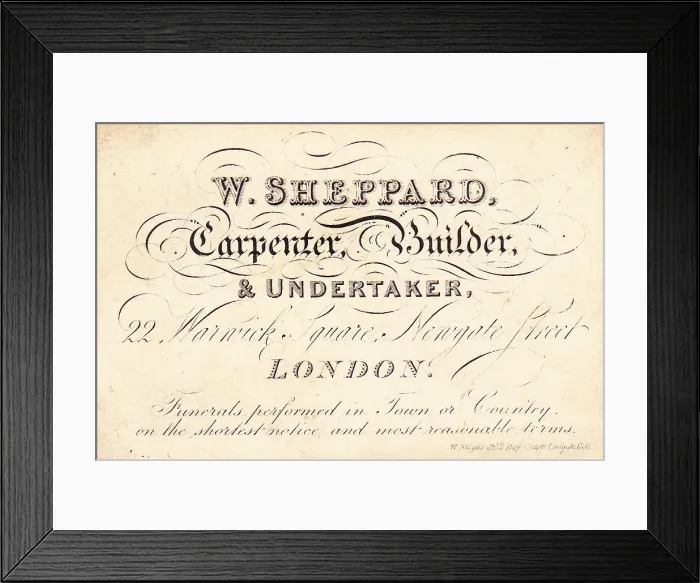 W. SHEPPARD,
Carpenter, Builder,
& UNDERTAKER,
22, Warwick Square, Newgate Street
LONDON.
Funerals performed in Town or Country.
on the shortest notice and most reasonable terms.